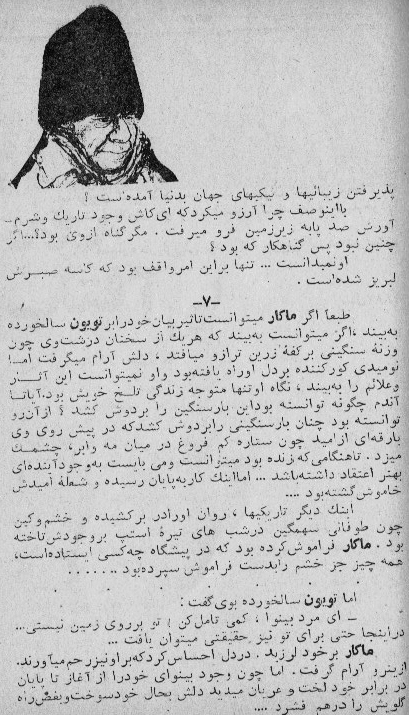 پذیرفتن زیبائیها و نیکیهای جهان بدنیا آمده‌است ؟
بااینوصف چرا آرزو میکردکه ای‌کاش وجود تاریك وشرم‌ـ
آورش صد پایه زیرزمین فرو میرفت . مگرگناه ازوی بود؟...اگر
چنین نبود پس گناهکار که بود ؟
اونمیدانست ... تنها براین امرواقف بود که کاسه صبرش
لبریز شده‌است .
ـ۷ـ
طبعا اگر ماکار میتوانست‌تاثیربیان خودرابر تویون سالخورده
به‌بیند ،اگر میتوانست به‌بیند که هریك از سخنان درشت‌وی چون
وزنهٔ سنگینی برکفهٔ زرین ترازو میافتد ، دلش آرام میگرفت اما
نومیدی کورکننده بردل اوراه یافته‌بود واو نمیتوانست این آثار
وعلائم را به‌بیند ، نگاه اوتنها متوجه زندگی تلخ خویش بود.آیاتا
آندم چگونه توانسته بوداین بارسنگین را بردوش کشد ؟ ازآن‌رو
توانسته بود چنان بارسنگینی رابردوش کشدکه در پیش روی وی
بارقه‌ای ازامید چون ستاره کم فروغ در میان مه وابر، چشمك
میزد . تاهنگامی‌که زنده بود میتوانست ومی بایست به‌وجودآینده‌ای
بهتر اعتقاد داشته‌باشد ... امااینك کاربه‌پایان رسیده و شعلهٔ امیدش
خاموش‌گشته‌بود ....
اینك دیگر تاریکیها ، روان اورادر برکشیده و خشم‌وکین
چون طوفانی سهمگین درشب های تیرهٔ استپ بروجودش‌تاخته
بود . ماکار فراموش‌کرده بود که در پیشگاه چه‌کسی ایستاده‌است،
همه چیز جز خشم رابدست فراموش سپرده‌بود .......
اما تویون سالخورده بوی‌گفت :
ـ ای مرد بینوا ، کمی تامل‌کن ! تو برروی زمین نیستی...
دراینجا حتی برای تو نیز حقیقتی میتوان یافت ...
ماکار برخود لرزید . دردل احساس‌کردکه‌براونیزرحم‌میآورند.
ازینرو آرام گرفت . اما چون وجود بینوای خودرا از آغاز تا پایان
در برابر خود لخت و عریان میدید دلش بحال خودسوخت‌وبغض‌راه
گلویش را درهم فشرد ....